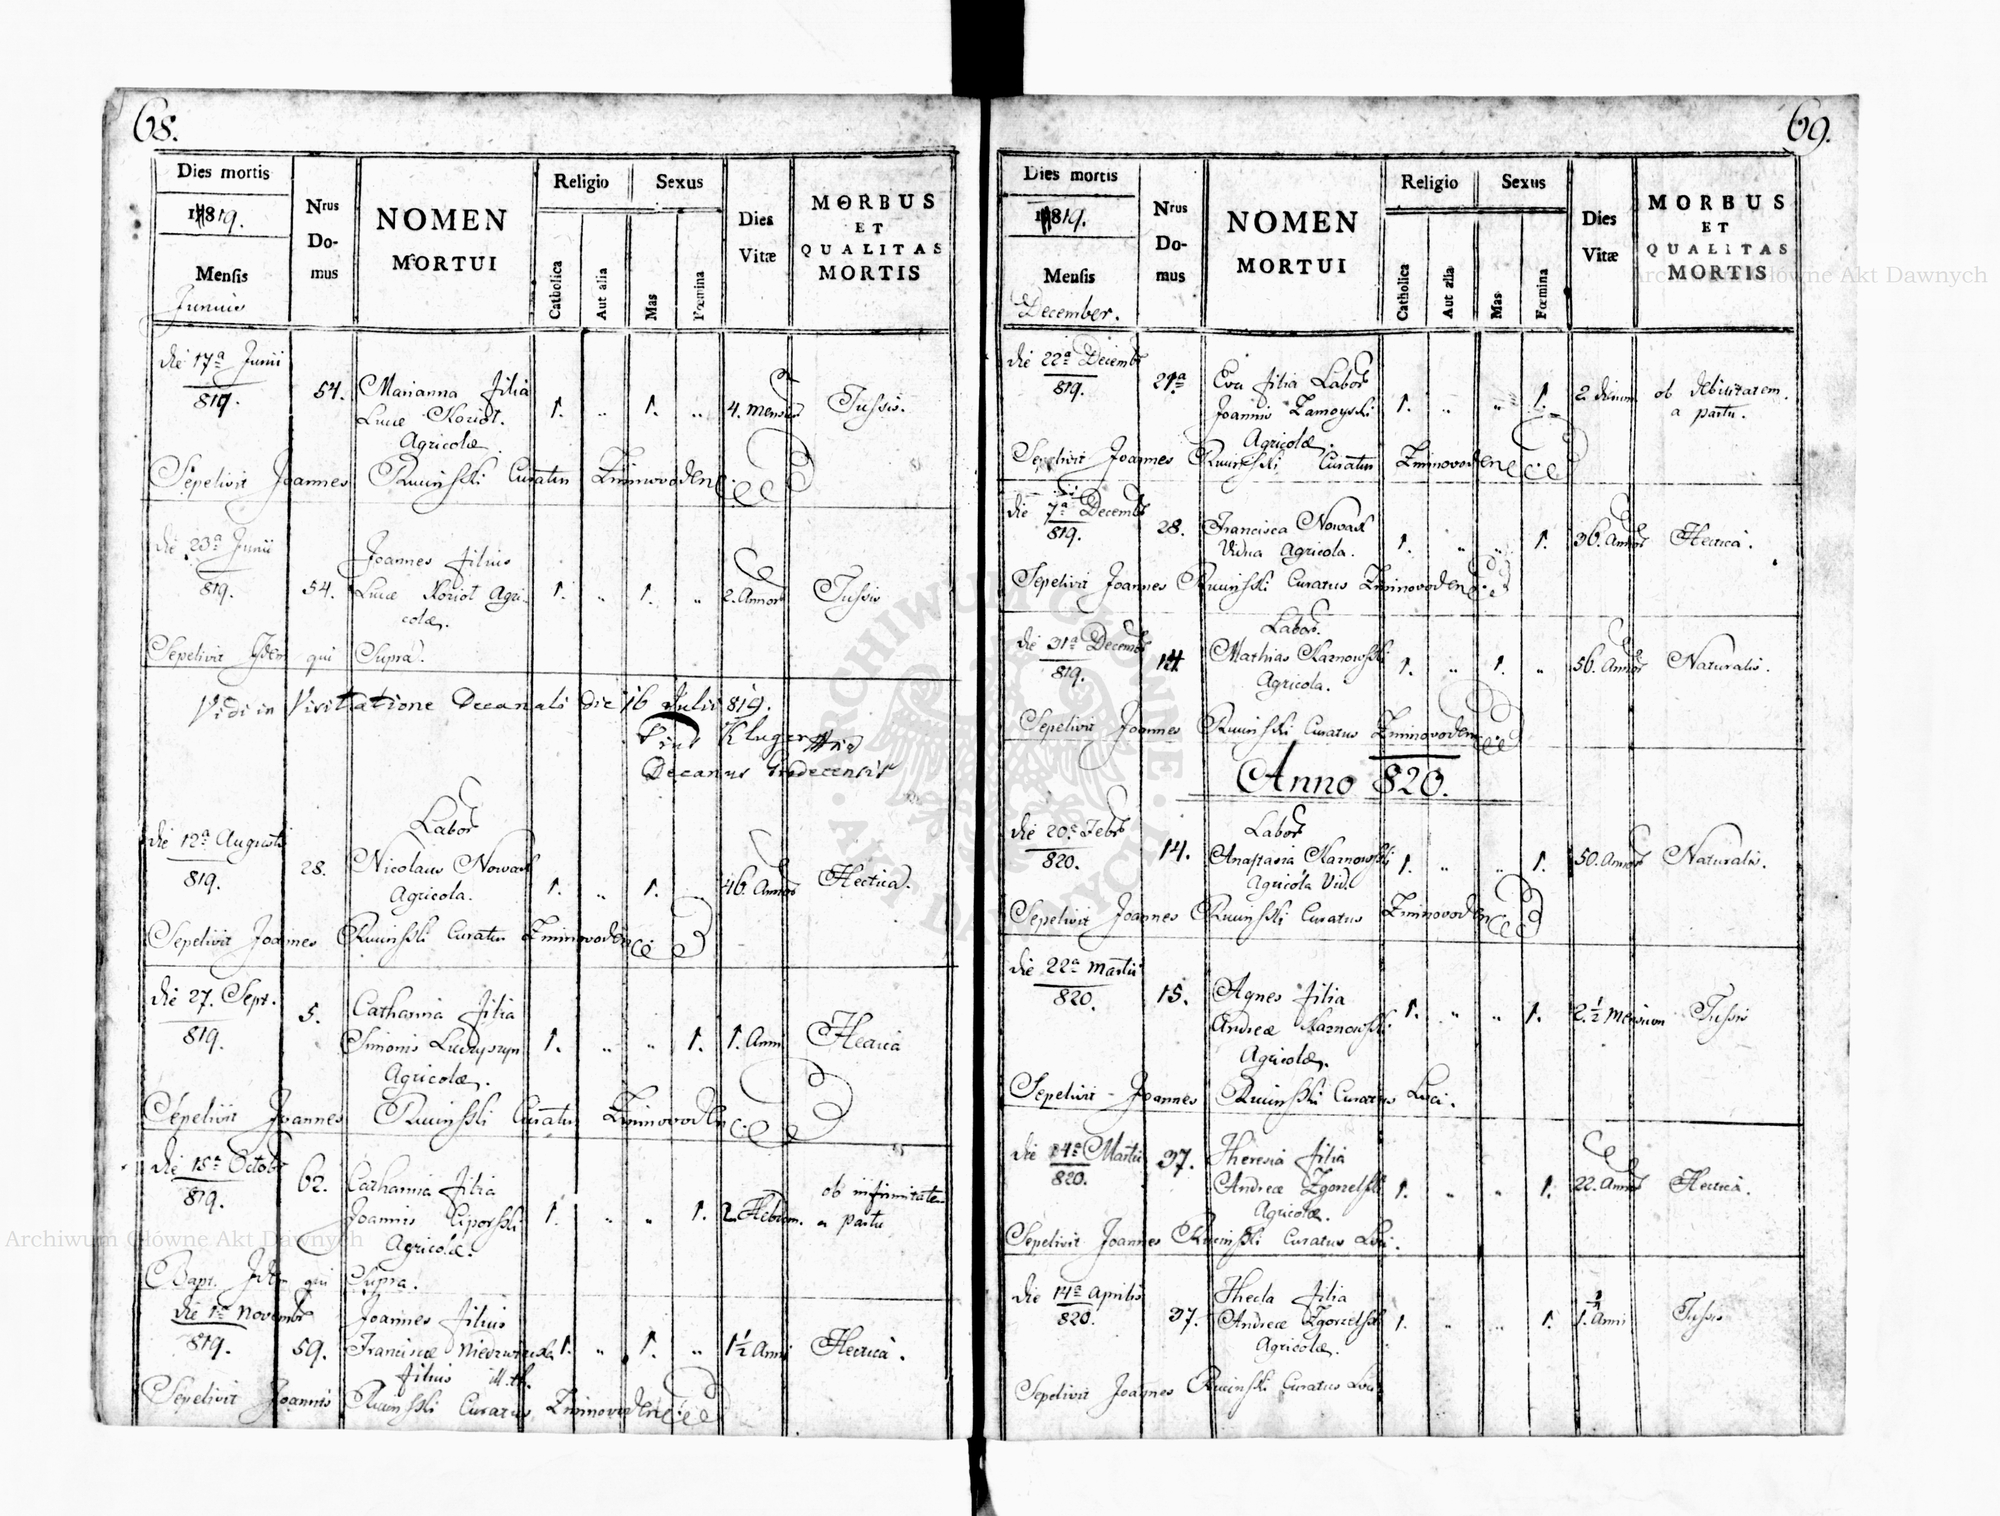 68.
Dies mortis
1819.
Mensis
Junius
Nrus
Do-
mus
NOMEN
MORTUI
Religio
Catholica
Aut alia
Sexus
Mas
Fœmina
Dies
Vitæ
MORBUS
ET
QUALITAS
MORTIS
die 17ª Junii
819.
54.
Marianna filia
Lucæ Koriot.
Agricolæ.
1. „ 1. „
4. mensis
Tussis.
Sepelivit Joannes Ruciński Curatus
die 23ª Junii
819.
54.
Joannes filius
Lucæ Koriot Agri-
colæ.
1. „ 1. „
2. Annor
Tussis
Sepelivit Idem qui Supra.
Vidi in Visitatione Decanali die 16 Julii 819.
Kluger
Decanus
die 12ª Augusti
819.
28.
Labor
Nicolaus Nowak
Agricola.
1. „ 1.
46. Annor
Hectica.
Sepelivit Joannes Ruciński Curatus
die 27. Sept.
819.
5.
Catharina filia
Simonis
Agricolæ.
1. „ „ 1.
1. Anni
Hectica
Sepelivit Joannes Ruciński Curatus
die 15ª Octobr
819.
62.
Catharina filia
Joannis
Agricolæ.
1. „ „ 1.
2. Hebdom.
ob infirmitate
a partu
Bapt. Idem qui Supra.
die 1ª Novembr
819.
59.
Joannes filius
Franciscæ
filius ill. th.
1. „ 1. „
1½ Anni
Hectica.
Sepelivit Joannis Ruciński Curatus
69.
Dies mortis
1819.
Mensis
December.
Nrus
Do-
mus
NOMEN
MORTUI
Religio
Catholica
Aut alia
Sexus
Mas
Fœmina
Dies
Vitæ
MORBUS
ET
QUALITAS
MORTIS
die 22ª Decembr
819.
21ª
Eva filia Labor
Joannis Zamoyski
Agricolæ.
1. „ „ 1.
2. dierum
ob debilitatem.
a partu.
Sepelivit Joannes Ruciński Curatus
die 7ª Decembr
819.
28.
Francisca Nowak
Vidua Agricola.
1. „ „ 1.
36. Annor
Hectica.
Sepelivit Joannes Ruciński Curatus
die 31ª Decembr
819.
14
Labor.
Mathias Karnowski
Agricola.
1. „ 1. „
56. Annor
Naturalis.
Sepelivit Joannes Ruciński Curatus
Anno 820.
die 20ª Febr
820.
14.
Labor
Anastasia Karnowski
Agricola Vid.
1. „ „ 1.
50. Annor
Naturalis.
Sepelivit Joannes Ruciński Curatus
die 22ª Martii
820.
15.
Agnes filia
Andreæ Karnowski
Agricolæ.
1. „ „ 1.
2½ Mensium
Tussis
Sepelivit Joannes Ruciński Curatus Loci.
die 14ª Martii
820.
37.
Theresia filia
Andreæ Zgorzelski
Agricolæ.
1. „ „ 1.
22. Annor
Hectica.
Sepelivit Joannes Ruciński Curatus Loci.
die 14ª Aprilis
820.
37.
Thecla filia
Andreæ Zgorzelski
Agricolæ.
1. „ „ 1.
1. Anni
Tussis
Sepelivit Joannes Ruciński Curatus Loci
Archiwum Główne Akt Dawnych
Archiwum Główne Akt Dawnych
ARCHIWUM GŁÓWNE
AKT DAWNYCH